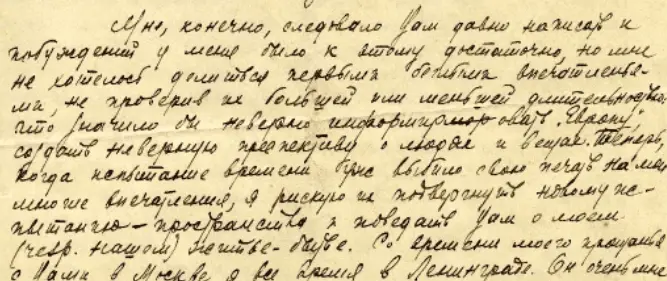 Мне, конечно, следовало Вам давно написать и
побуждений у меня было к этому достаточно, но мне
не хотелось делиться первыми беглыми впечатленья-
ми, не проверив их большей или меньшей длительностью.
Это значило бы неверно информировать „Европу“,
создать неверную перспективу о людях и вещах. Теперь,
когда испытание временем уже выбило свою печать на мои
многие впечатления, я рискую их подвергнуть новому ис-
пытанию – пространства и поведать Вам о моем
(resp. нашом) житье-бытье. Со времени моего прощанья
с Вами в Москве я все время в Ленинграде. Он очень мне